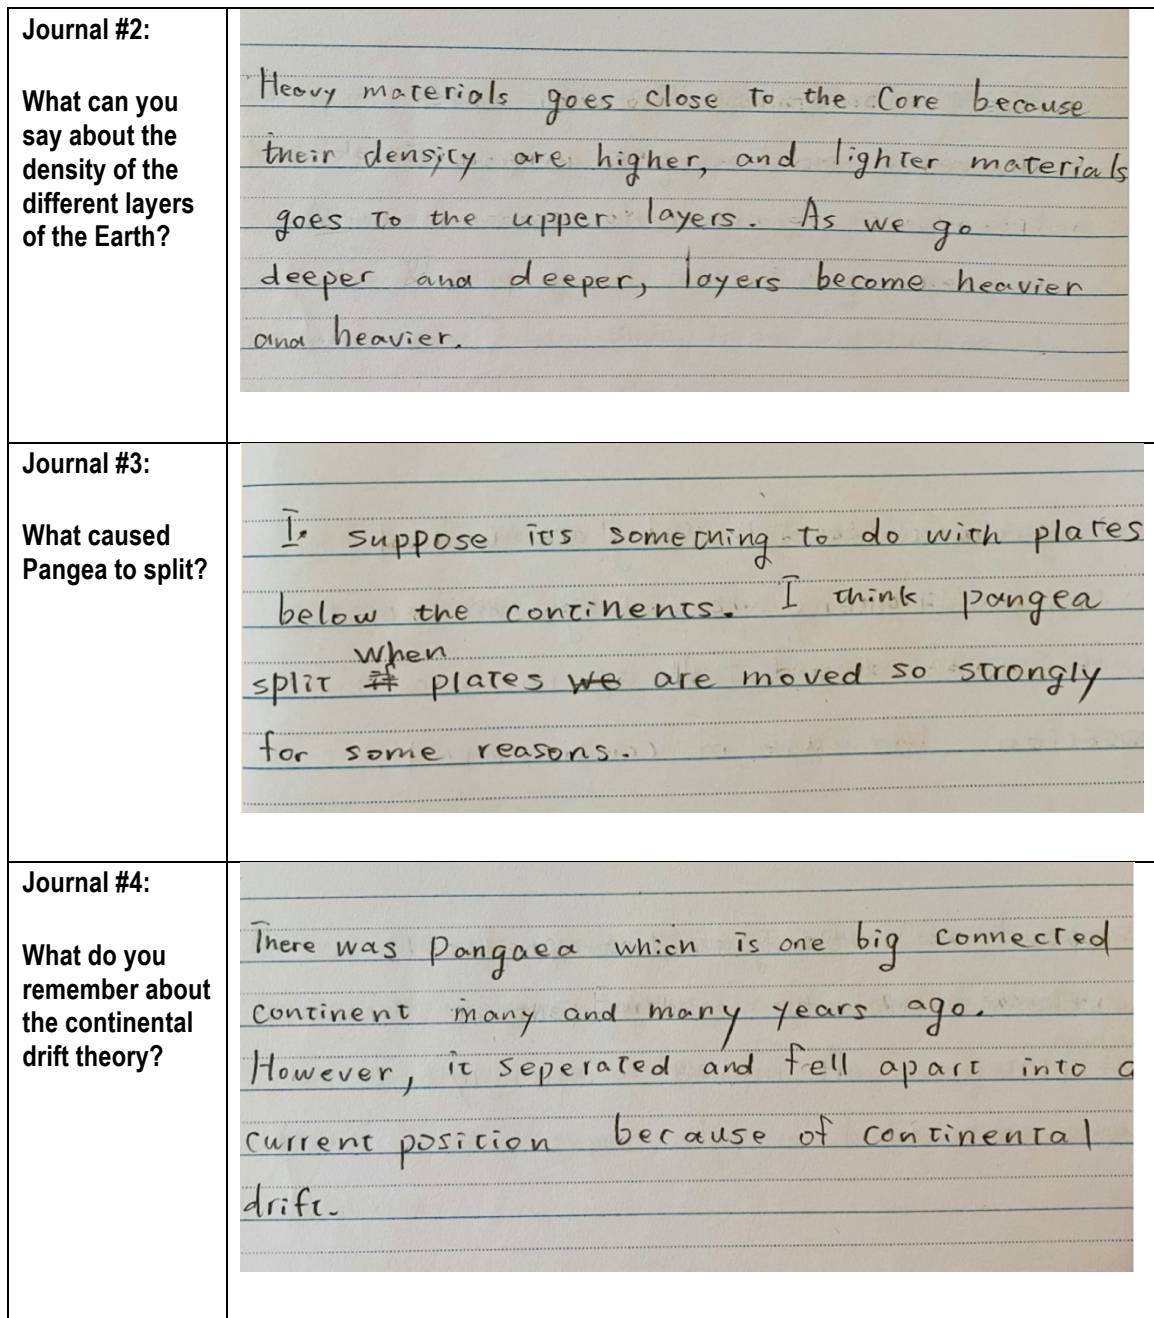 Journal #2:
What can you
say about the
density of the
different layers
of the Earth?
Heavy materials goes close to the Core because
their density are higher, and lighter materials
goes to the upper layers. As we go
deeper and deeper, layers become heavier
and heavier.
Journal #3:
What caused
Pangea to split?
I suppose it's something to do with plates
below the continents. I think pangea
when
split if plates we are moved so strongly
for some reasons.
Journal #4:
What do you
remember about
the continental
drift theory?
There was Pangaea which is one big connected
continent many and many years ago.
However, it seperated and fell apart into a
current position because of continental
drift.